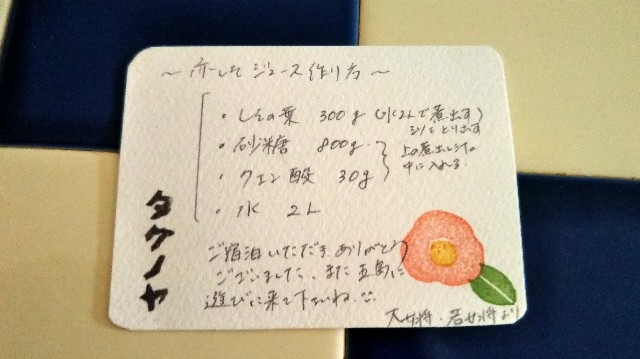 ～赤しそジュース作り方～
・しその葉 300g (水2Lで煮出す)
シソをとり出す
・砂糖 800g
・クエン酸 30g
上の煮出し汁の
中に入れる
・水 2L
ご宿泊いただき、ありがとう
ございました。また五島に
遊びに来て下さいね。
大女将・若女将より